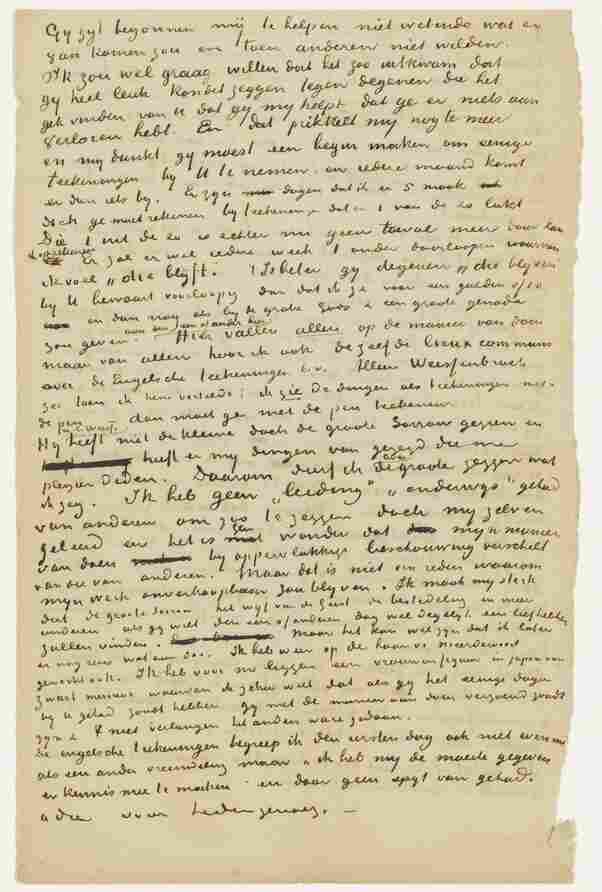 Gy zyt begonnen mij te helpen niet wetende wat er
van komen zou en toen anderen niet wilden.
Ik zou wel graag willen dat het zoo uitkwam dat
gy heel leuk kondet zeggen tegen degenen die het
gek vinden van U dat gy my helpt dat ge er niets aan
verloren hebt. En dat prikkelt my nog te meer
en my dunkt gy moest een begin maken om eenige
teekeningen by U te nemen en iedere maand komt
er dan iets by. Er zyn dagen dat ik er 5 maak
doch ge moet rekenen by teekeningen dat er 1 van de 20 lukt
Die 1 uit de 20 is echter nu geen toeval meer daar kan
ik op rekenen Er zal er wel iedere week 1 onder doorloopen waarvan
ik voel „die blyft".
by U bewaart voorloopig dan dat ik ze voor een gulden of 10
en dan nog als by de gratie Gods & een groote genade
aan een van of ander hier
zou geven. Hier vallen allen op de manier van doen
maar van allen hoor ik ook dezelfde lieux communs
over de Engelsche teekeningen b.v. Alleen Weissenbruch
zei toen ik hem vertelde: ik zie de dingen als teekeningen met
de pen dan moet ge met de pen teekenen.
Hy heeft niet de kleine doch de groote Sorrow gezien en
heeft er my dingen van gezegd die me
plezier deden. Daarom durf ik van de groote zeggen wat
ik zeg. Ik heb geen „leiding" „onderwys" gehad
van anderen om zoo te zeggen doch my zelven
geleerd en het is geen wonder dat myn manier
van doen by oppervlakkige beschouwing verschilt
van die van anderen. Maar dat is niet een reden waarom
myn werk onverkoopbaar zou blyven. Ik maak my sterk
dat de groote Sorrow het wyf van de Geest de besteedeling en meer
anderen als gy wilt den een of anderen dag wel degelyk een liefhebber
zullen vinden. Maar het kan wel zyn dat ik later
er nog eens wat aan doe. Ik heb weer op de laan v. Meerdervoort
gewerkt ook. Ik heb voor me liggen een vrouwenfiguur in japon van
zwart merinos waarvan ik zeker weet dat als gy het eenige dagen
by U gehad zoudt hebben gy met de manier van doen verzoend zoudt
zyn & & niet verlangen het anders ware gedaan.
De engelsche teekeningen begreep ik den eersten dag ook niet evenmin
als een ander vreemdeling maar ik heb my de moeite gegeven
er kennis mee te maken en daar geen spyt van gehad.
adie voor heden genoeg. —